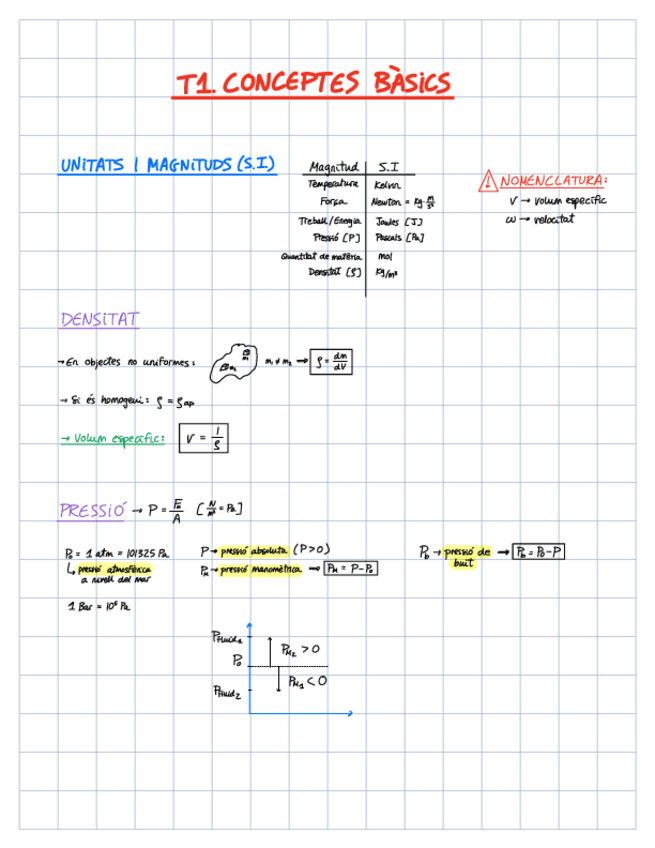 T1. CONCEPTES BÀSICS
UNITATS I MAGNITUDS (S.I)
Magnitud S.I
Temperatura Kelvin
Força Newton = kg·m/s²
Treball/Energia Joules [J]
Pressió [P] Pascals [Pa]
Quantitat de matèria mol
Densitat [ρ] kg/m³
⚠ NOMENCLATURA:
v → volum específic
ω → velocitat
DENSITAT
→ En objectes no uniformes: m₁ m₂ m₁ ≠ m₂ → ρ = dm/dV
→ Si és homogeni: ρ = ρap
→ Volum específic: v = 1/ρ
PRESSIÓ → P = Fn/A [N/m² = Pa]
P₀ = 1 atm = 101325 Pa
↳ pressió atmosfèrica
a nivell del mar
1 Bar = 10⁵ Pa
P → pressió absoluta (P>0)
PM → pressió manomètrica → PM = P - P₀
Pb → pressió de → Pb = P₀ - P
buit
Pfluid₁
P₀
Pfluid₂
PM₂ > 0
PM₁ < 0